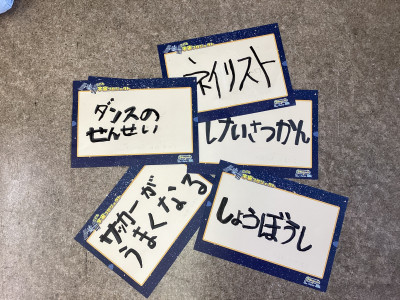 ネイリスト
ダンスの
せんせい
けいさつかん
サッカーが
うまくなる
しょうぼうし